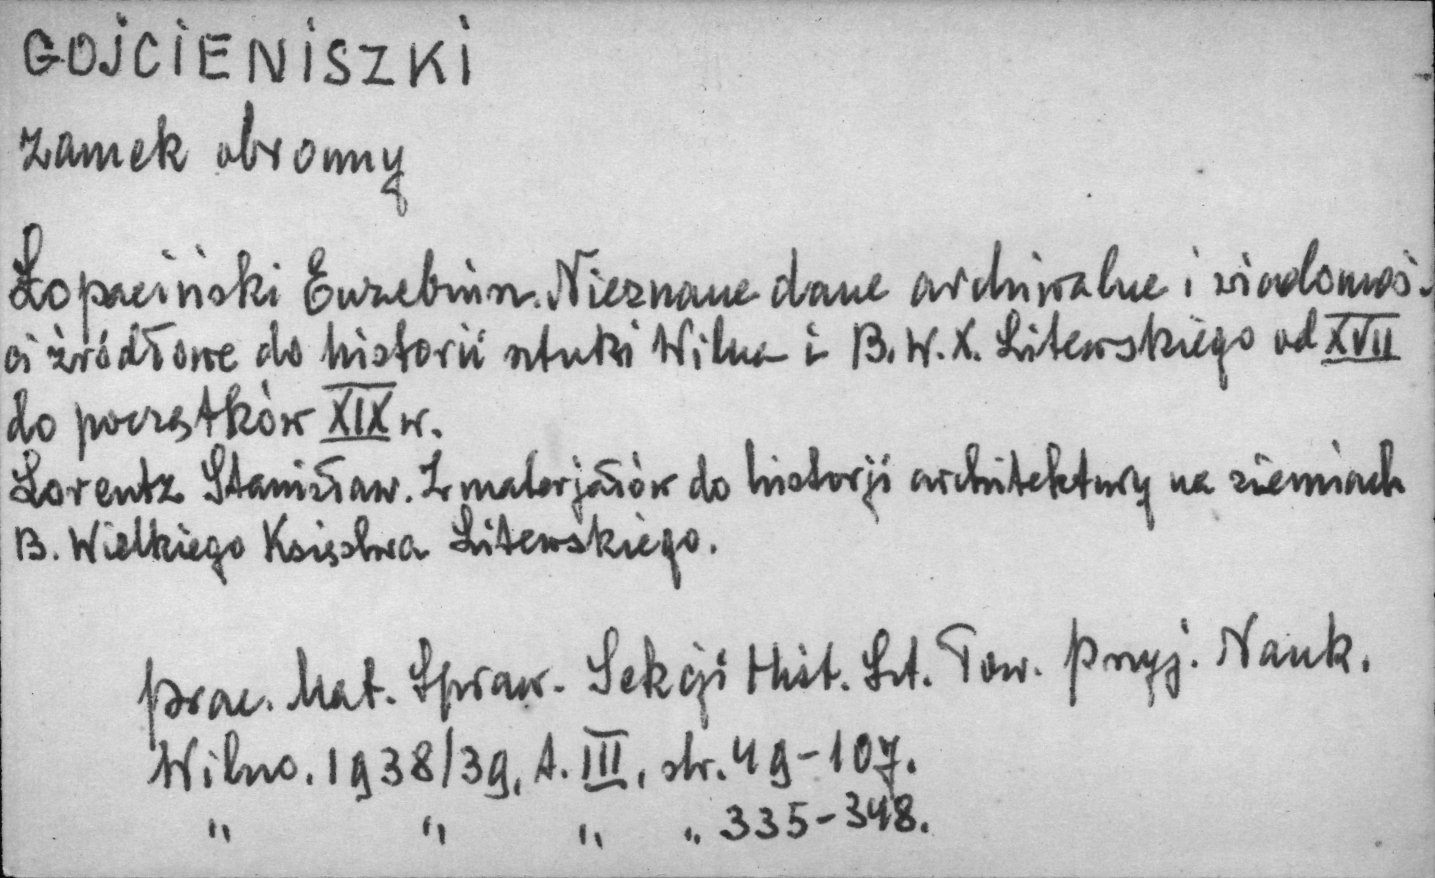 GOJCIENISZKI
zamek obronny
Łopaciński Euzebiusz. Nieznane dane archiwalne i wiadomoś-
ci źródłowe do historii sztuki Wilna i B.W.X. Litewskiego od XVII
do początków XIX w.
Lorentz Stanisław. Z materjałów do historji architektury na ziemiach
B. Wielkiego Księstwa Litewskiego.
Prac. Mat. Spraw. Sekcji Hist. Szt. Tow. Przyj. Nauk.
Wilno. 1938/39, t. III, str. 49-107.
" " " " 335-348.